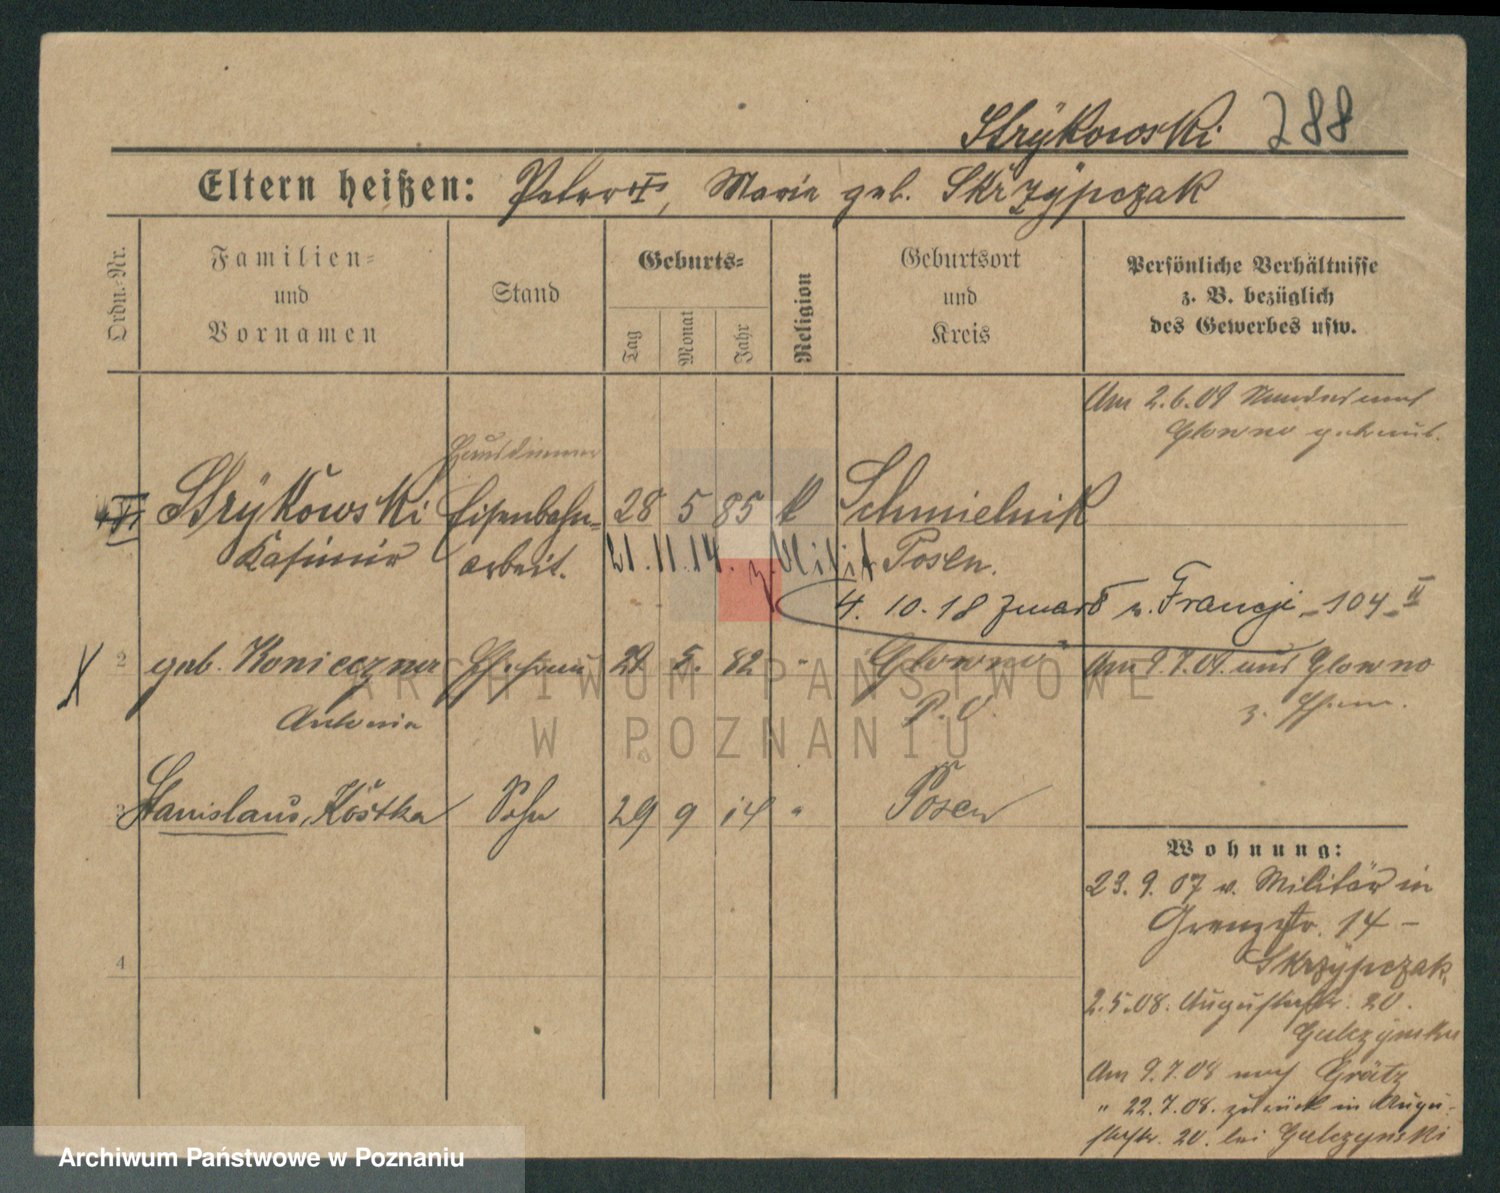 Strÿkowski 288
Eltern heißen: Peter †, Marie geb. Skrzÿpczak
Ordn.-Nr.
Familien-
und
Vornamen
Stand
Geburts-
Tag
Monat
Jahr
Religion
Geburtsort
und
Kreis
Persönliche Verhältnisse
z. B. bezüglich
des Gewerbes usw.
Am 2.6.09
Glowno
Hausdiener
Strÿkowski Eisenbahn- 28 5 85 k Schmielnik
Kasimir arbeit. Posen.
21.11.14. z. Milit
4. 10. 18 zmarł w Francji - 104 - II
2 geb. Konieczna Ehefrau 5. 82 " Glowno Am 9.7.09. aus Glowno
Antonia P. O. z. Ehem.
3 Stanislaus, Kostka Sohn 29 9 14 " Posen
Wohnung:
23. 9. 07 v. Militär in
Grenzstr. 14 -
Skrzÿpczak,
4
2.5.08. Augustastr. 20.
Gulczynski
Am 9.7.08 nach Grätz
" 22.7.08. zurück in Augu-
stastr. 20. bei Gulczynski
ARCHIWUM PAŃSTWOWE
W POZNANIU
Archiwum Państwowe w Poznaniu